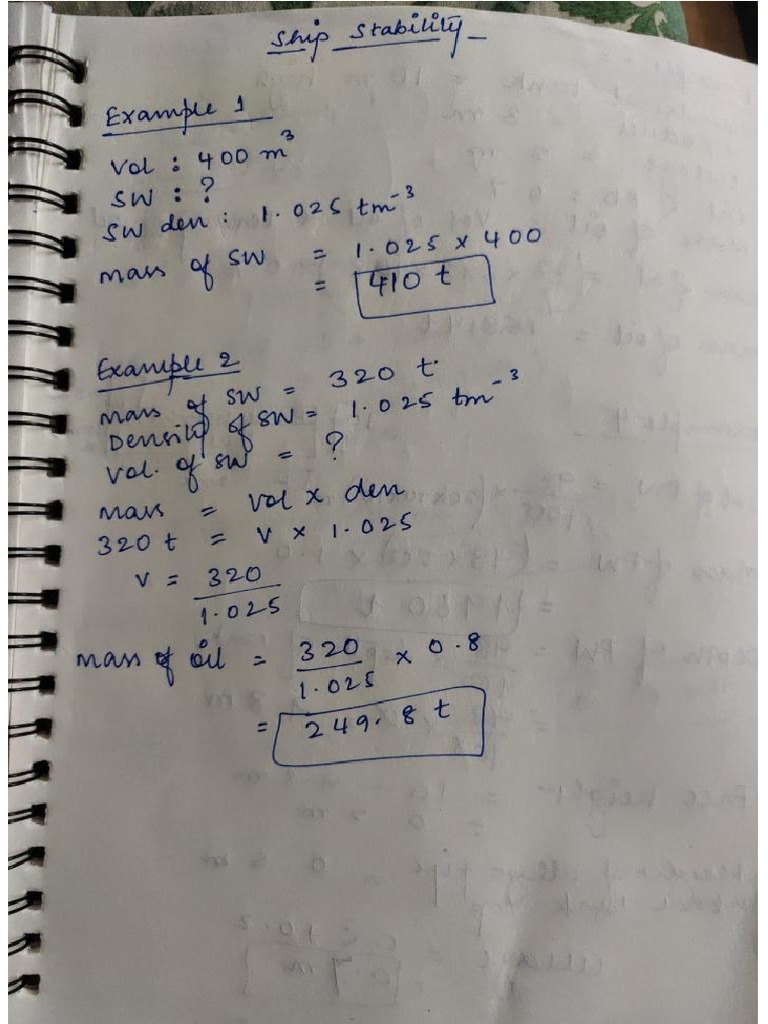 Ship Stability
Example 1
Vol : 400 m³
SW : ?
SW den : 1.025 tm⁻³
Mass of SW = 1.025 x 400
= 410 t
Example 2
Mass of SW = 320 t
Density of SW = 1.025 tm⁻³
Vol. of SW = ?
Mass = Vol x den
320 t = V x 1.025
V = 320
1.025
Mass of oil = 320 x 0.8
1.025
= 249.8 t